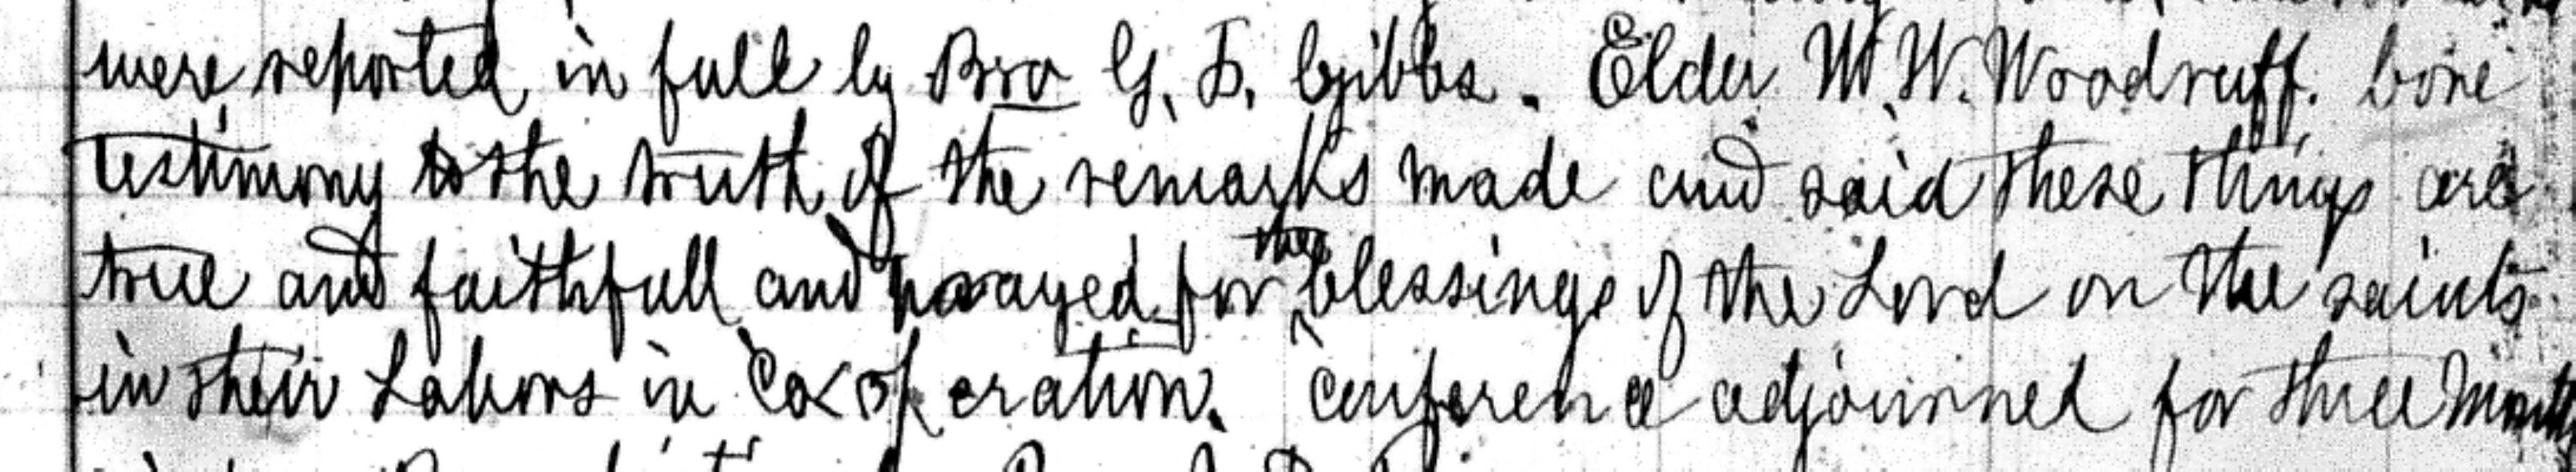 were reported in full by Bro G. F. Gibbs. Elder W. W. Woodruff. bore
testimony to the truth of the remarks made and said these things are
true and faithfull and prayed for the blessings of the Lord on the saints
in their Labors in Co operation. conference adjourned for three Months